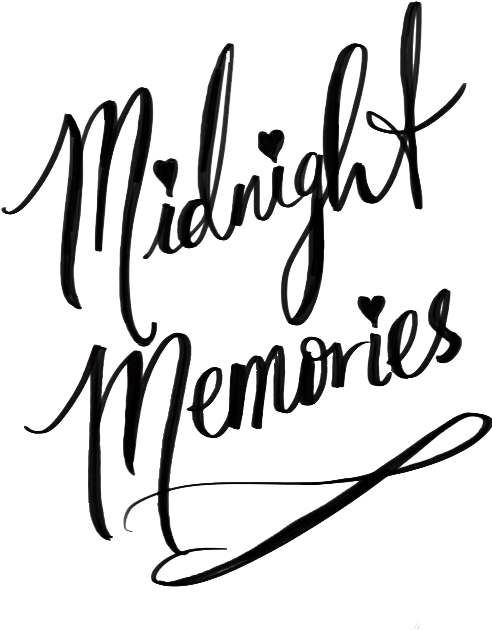 Midnight
Memories